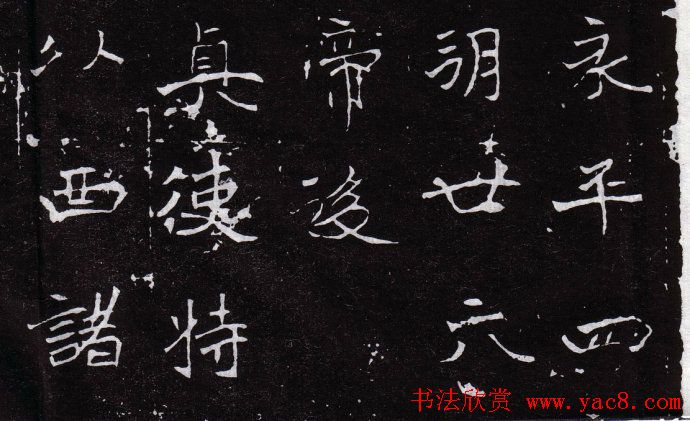 永平四
明廿六
帝後
真使持
以西諸
书法欣赏 www.yac8.com